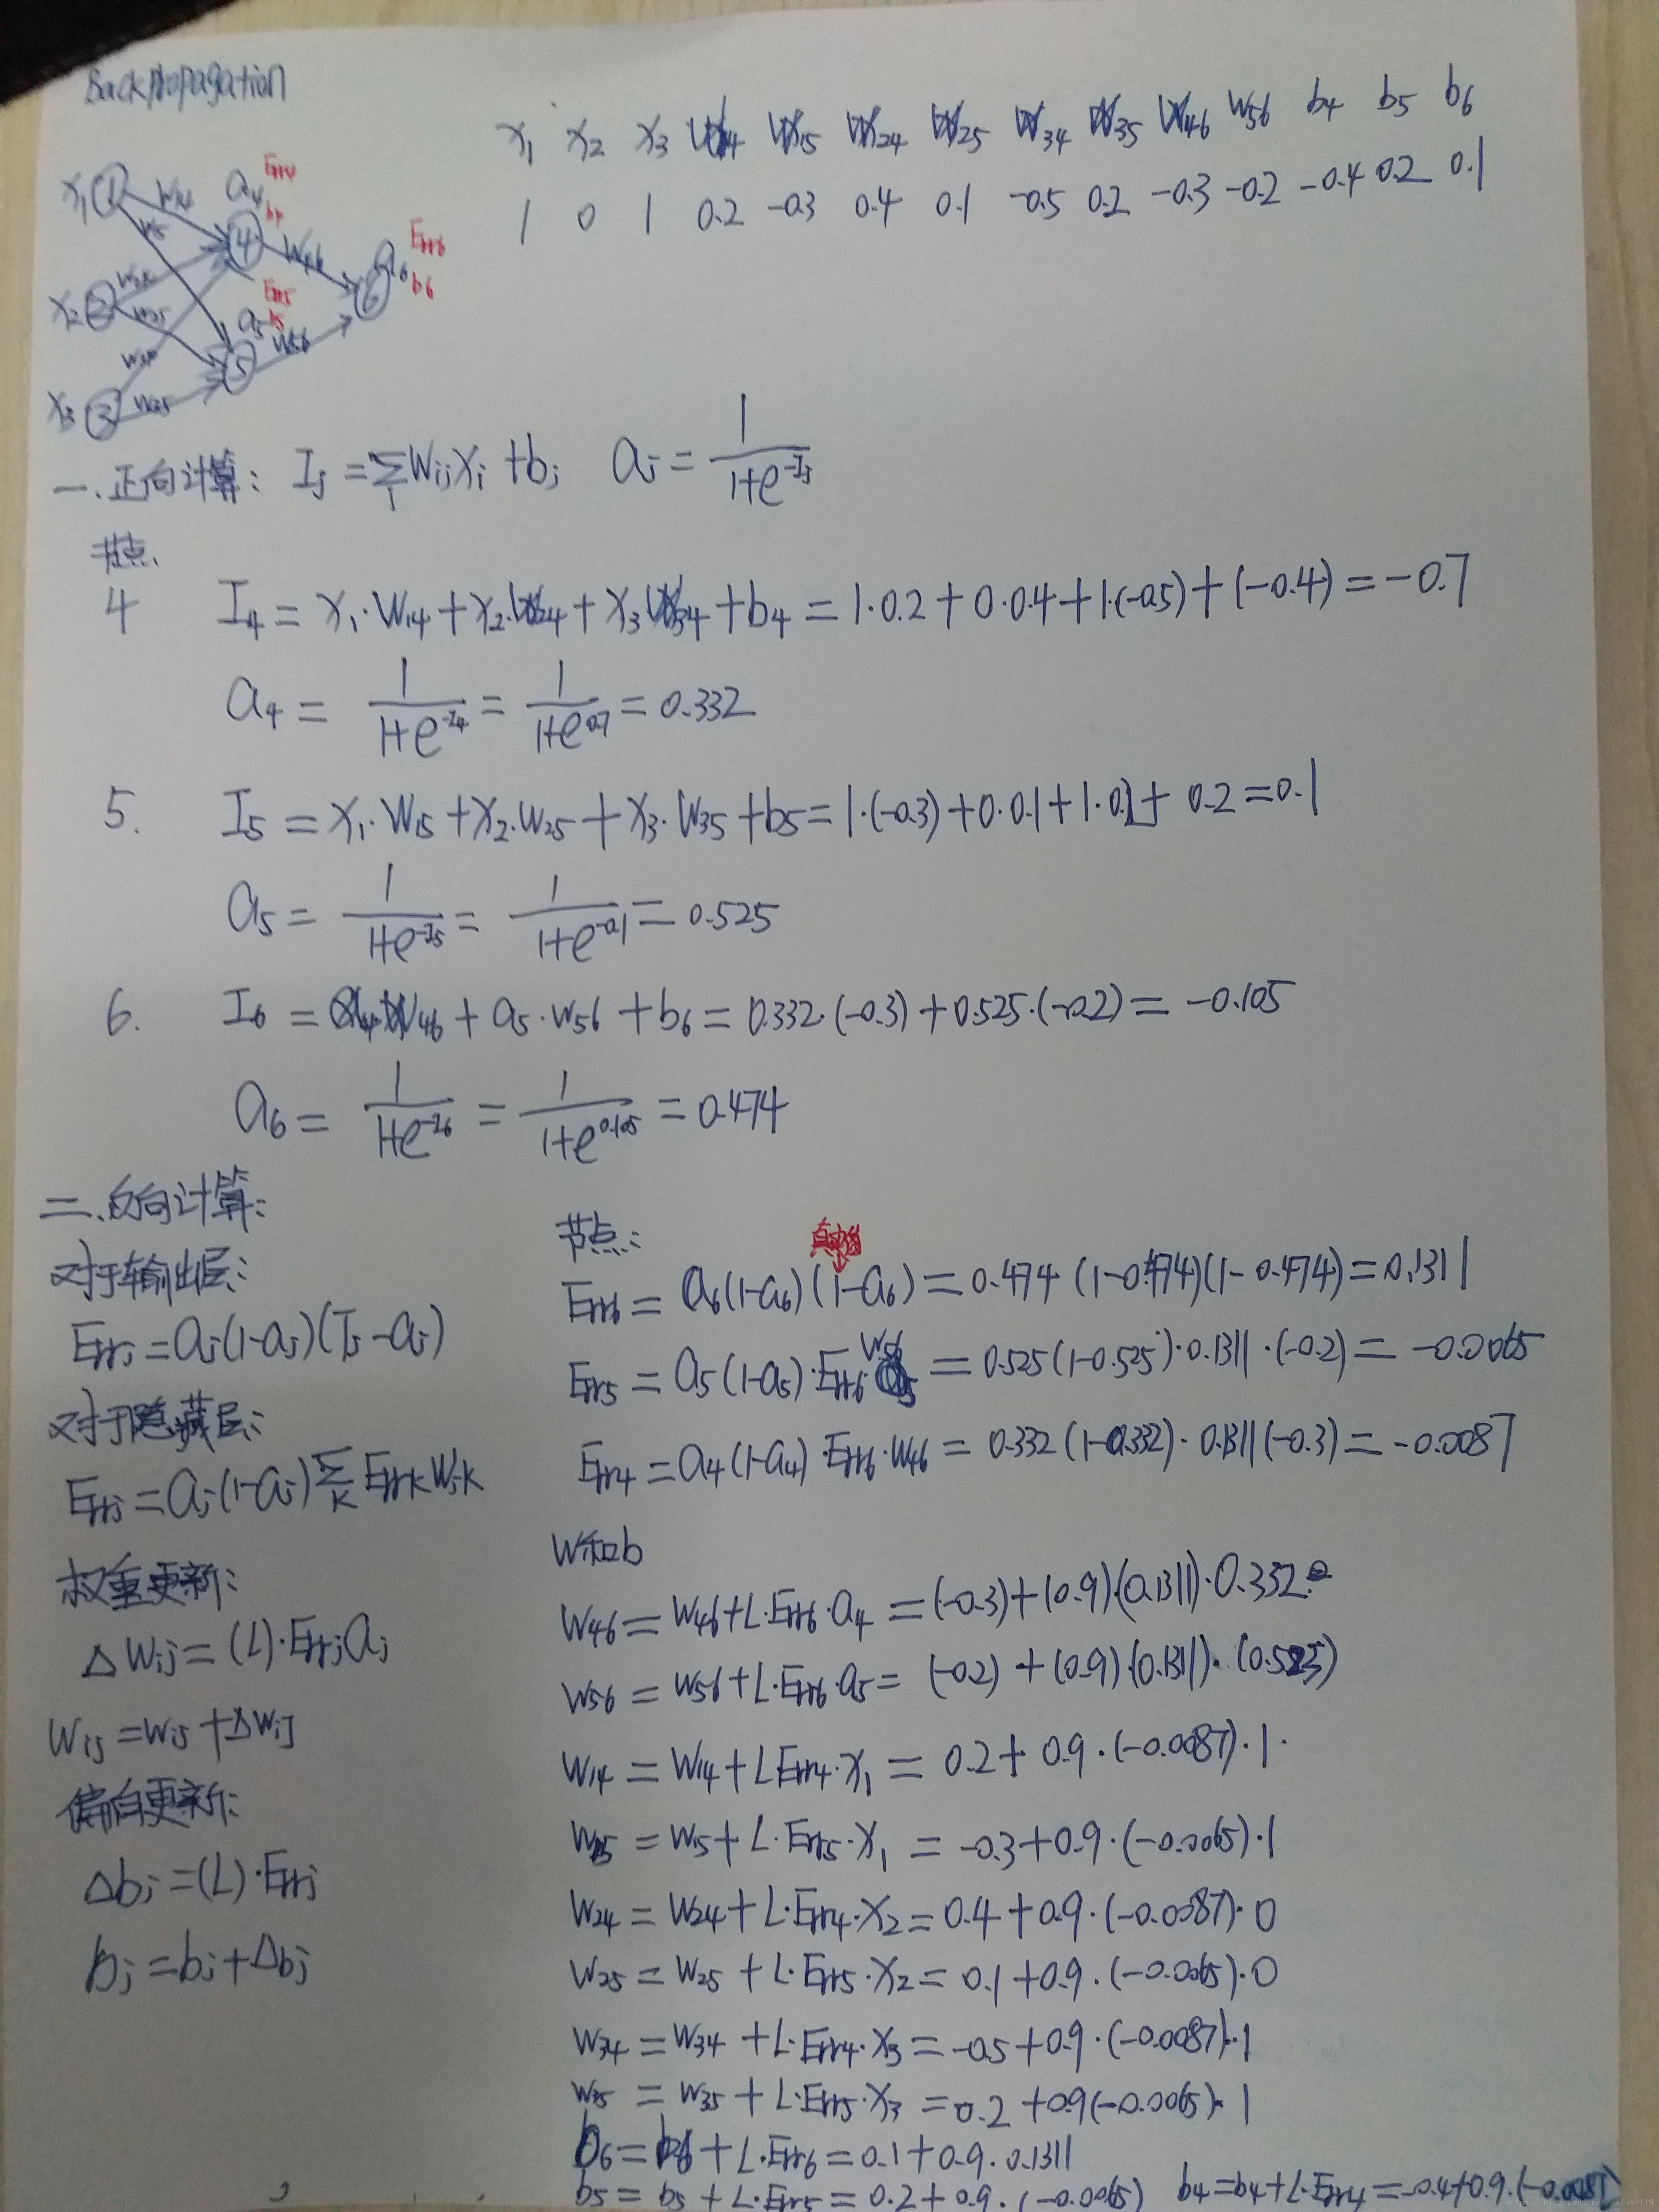 Backpropagation
x1 x2 x3 w14 w15 w24 w25 w34 w35 w46 w56 b4 b5 b6
1 0 1 0.2 -0.3 0.4 0.1 -0.5 0.2 -0.3 -0.2 -0.4 0.2 0.1
x1 1 w14 a4 Err4 b4
w15 4 w46 a6 Err6 b6
x2 2 w24 w25 Err5 6
a5 b5 w56
w34 5
x3 3 w35
一.正向计算: Ij = Σi wij xi + bj aj = 1/(1+e^-Ij)
节点.
4 I4 = x1·w14 + x2·w24 + x3 w34 + b4 = 1·0.2 + 0·0.4 + 1·(-0.5) + (-0.4) = -0.7
a4 = 1/(1+e^-I4) = 1/(1+e^0.7) = 0.332
5. I5 = x1·w15 + x2·w25 + x3·w35 + b5 = 1·(-0.3) + 0·0.1 + 1·0.2 + 0.2 = 0.1
a5 = 1/(1+e^-I5) = 1/(1+e^-0.1) = 0.525
6. I6 = a4·w46 + a5·w56 + b6 = 0.332·(-0.3) + 0.525·(-0.2) = -0.105
a6 = 1/(1+e^-I6) = 1/(1+e^0.105) = 0.474
二.反向计算:
对于输出层:
Errj = aj(1-aj)(Tj-aj)
对于隐藏层:
Errj = aj(1-aj) Σk Errk wjk
权重更新:
Δwij = (L)·Errj aj
wij = wij + Δwij
偏向更新:
Δbj = (L)·Errj
bj = bj + Δbj
节点:
真实值
Err6 = a6(1-a6)(1-a6) = 0.474(1-0.474)(1-0.474) = 0.1311
Err5 = a5(1-a5)·Err6·w56 = 0.525(1-0.525)·0.1311·(-0.2) = -0.0065
Err4 = a4(1-a4)·Err6·w46 = 0.332(1-0.332)·0.1311(-0.3) = -0.0087
w和b
w46 = w46 + L·Err6·a4 = (-0.3) + (0.9)(0.1311)·0.332
w56 = w56 + L·Err6·a5 = (-0.2) + (0.9)·(0.1311)·(0.525)
w14 = w14 + L Err4·x1 = 0.2 + 0.9·(-0.0087)·1.
w15 = w15 + L·Err5·x1 = -0.3 + 0.9·(-0.0065)·1
w24 = w24 + L·Err4·x2 = 0.4 + 0.9·(-0.0087)·0
w25 = w25 + L·Err5·x2 = 0.1 + 0.9·(-0.0065)·0
w34 = w34 + L·Err4·x3 = -0.5 + 0.9·(-0.0087)·1
w35 = w35 + L·Err5·x3 = 0.2 + 0.9(-0.0065)·1
b6 = b6 + L·Err6 = 0.1 + 0.9·0.1311
b5 = b5 + L·Err5 = 0.2 + 0.9·(-0.0065) b4 = b4 + L·Err4 = -0.4 + 0.9·(-0.0087)